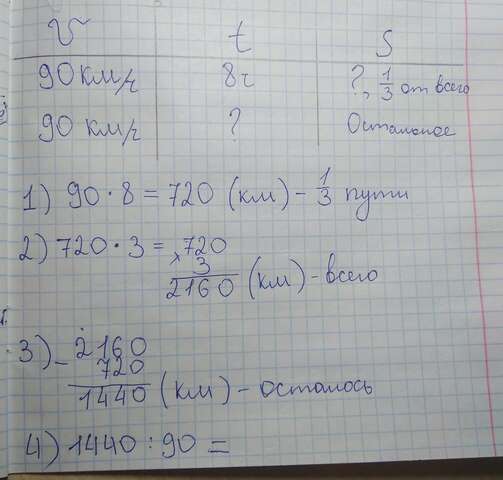 V t S
90 км/ч 8ч ?, 1/3 от всего
90 км/ч ? Остальное
1) 90 · 8 = 720 (км) – 1/3 пути
2) 720 · 3 = 720
× 3
2160 (км) – всего
3) – 2160
720
1440 (км) – осталось
4) 1440 : 90 =